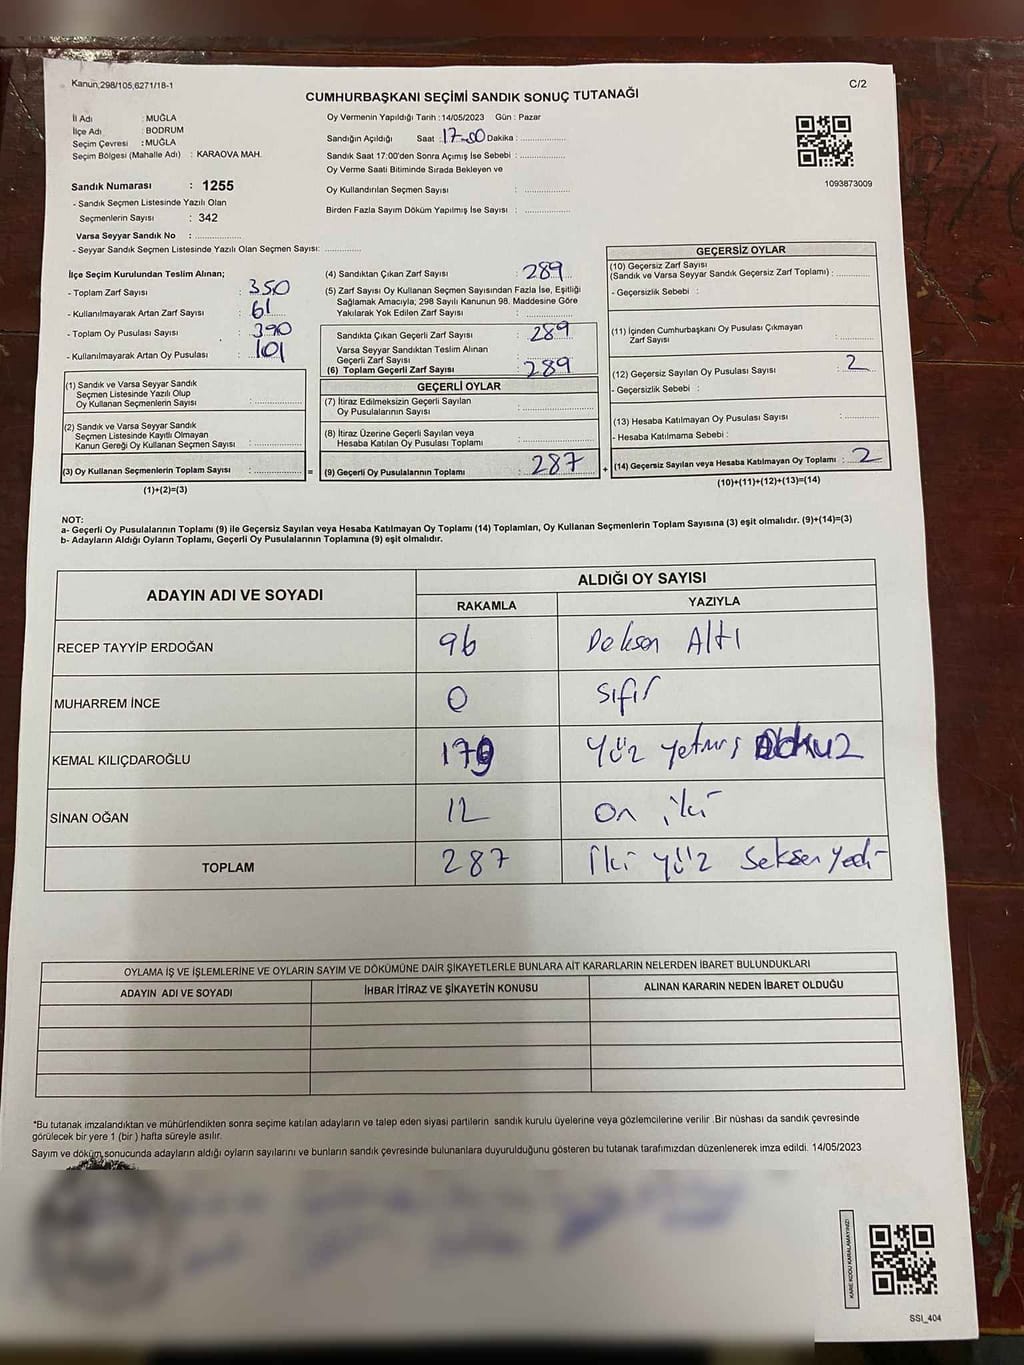 Kanun,298/105,6271/18-1
C/2
CUMHURBAŞKANI SEÇİMİ SANDIK SONUÇ TUTANAĞI
İl Adı : MUĞLA
İlçe Adı : BODRUM
Seçim Çevresi : MUĞLA
Seçim Bölgesi (Mahalle Adı) : KARAOVA MAH.
Sandık Numarası : 1255
- Sandık Seçmen Listesinde Yazılı Olan
Seçmenlerin Sayısı : 342
Varsa Seyyar Sandık No : ..............
- Seyyar Sandık Seçmen Listesinde Yazılı Olan Seçmen Sayısı: ............
Oy Vermenin Yapıldığı Tarih : 14/05/2023 Gün : Pazar
Sandığın Açıldığı Saat : 17.00 Dakika : ..............
Sandık Saat 17:00'den Sonra Açımış İse Sebebi : ..............
Oy Verme Saati Bitiminde Sırada Bekleyen ve
Oy Kullandırılan Seçmen Sayısı : ..............
Birden Fazla Sayım Döküm Yapılmış İse Sayısı : ..............
1093873009
İlçe Seçim Kurulundan Teslim Alınan;
- Toplam Zarf Sayısı : 350
- Kullanılmayarak Artan Zarf Sayısı : 61
- Toplam Oy Pusulası Sayısı : 390
- Kullanılmayarak Artan Oy Pusulası : 101
(1) Sandık ve Varsa Seyyar Sandık
Seçmen Listesinde Yazılı Olup
Oy Kullanan Seçmenlerin Sayısı : ..............
(2) Sandık ve Varsa Seyyar Sandık
Seçmen Listesinde Kayıtlı Olmayan
Kanun Gereği Oy Kullanan Seçmen Sayısı : ..............
(3) Oy Kullanan Seçmenlerin Toplam Sayısı : .............. =
(1)+(2)=(3)
(4) Sandıktan Çıkan Zarf Sayısı : 289
(5) Zarf Sayısı Oy Kullanan Seçmen Sayısından Fazla İse, Eşitliği
Sağlamak Amacıyla; 298 Sayılı Kanunun 98. Maddesine Göre
Yakılarak Yok Edilen Zarf Sayısı : ..............
Sandıkta Çıkan Geçerli Zarf Sayısı : 289
Varsa Seyyar Sandıktan Teslim Alınan
Geçerli Zarf Sayısı : ..............
(6) Toplam Geçerli Zarf Sayısı : 289
GEÇERLİ OYLAR
(7) İtiraz Edilmeksizin Geçerli Sayılan
Oy Pusulalarının Sayısı : ..............
(8) İtiraz Üzerine Geçerli Sayılan veya
Hesaba Katılan Oy Pusulası Toplamı : ..............
(9) Geçerli Oy Pusulalarının Toplamı : 287 +
GEÇERSİZ OYLAR
(10) Geçersiz Zarf Sayısı
(Sandık ve Varsa Seyyar Sandık Geçersiz Zarf Toplamı) : ..............
- Geçersizlik Sebebi :
(11) İçinden Cumhurbaşkanı Oy Pusulası Çıkmayan
Zarf Sayısı : ..............
(12) Geçersiz Sayılan Oy Pusulası Sayısı : 2
- Geçersizlik Sebebi :
(13) Hesaba Katılmayan Oy Pusulası Sayısı : ..............
- Hesaba Katılmama Sebebi :
(14) Geçersiz Sayılan veya Hesaba Katılmayan Oy Toplamı : 2
(10)+(11)+(12)+(13)=(14)
NOT:
a- Geçerli Oy Pusulalarının Toplamı (9) ile Geçersiz Sayılan veya Hesaba Katılmayan Oy Toplamı (14) Toplamları, Oy Kullanan Seçmenlerin Toplam Sayısına (3) eşit olmalıdır. (9)+(14)=(3)
b- Adayların Aldığı Oyların Toplamı, Geçerli Oy Pusulalarının Toplamına (9) eşit olmalıdır.
ADAYIN ADI VE SOYADI ALDIĞI OY SAYISI
RAKAMLA YAZIYLA
RECEP TAYYİP ERDOĞAN 96 Doksan Altı
MUHARREM İNCE 0 Sıfır
KEMAL KILIÇDAROĞLU 179 Yüz yetmiş Dokuz
SİNAN OĞAN 12 On iki
TOPLAM 287 İki yüz seksen yedi
OYLAMA İŞ VE İŞLEMLERİNE VE OYLARIN SAYIM VE DÖKÜMÜNE DAİR ŞİKAYETLERLE BUNLARA AİT KARARLARIN NELERDEN İBARET BULUNDUKLARI
ADAYIN ADI VE SOYADI İHBAR İTİRAZ VE ŞİKAYETİN KONUSU ALINAN KARARIN NEDEN İBARET OLDUĞU
*Bu tutanak imzalandıktan ve mühürlendikten sonra seçime katılan adayların ve talep eden siyasi partilerin sandık kurulu üyelerine veya gözlemcilerine verilir .Bir nüshası da sandık çevresinde
görülecek bir yere 1 (bir ) hafta süreyle asılır.
Sayım ve döküm sonucunda adayların aldığı oyların sayılarını ve bunların sandık çevresinde bulunanlara duyurulduğunu gösteren bu tutanak tarafımızdan düzenlenerek imza edildi. 14/05/2023
KARE KODU KARALAMAYINIZ!
SSI_404